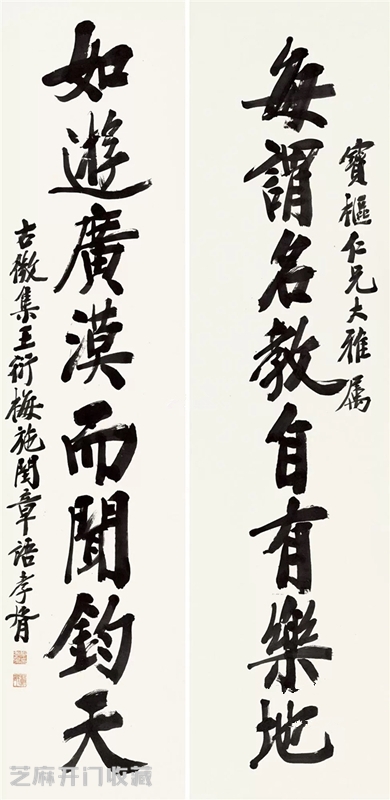 寶樞仁兄大雅属
每謂名教自有樂地
如遊廣漠而聞鈞天
古微集王衍梅施閏章語孝胥
芝麻开门收藏